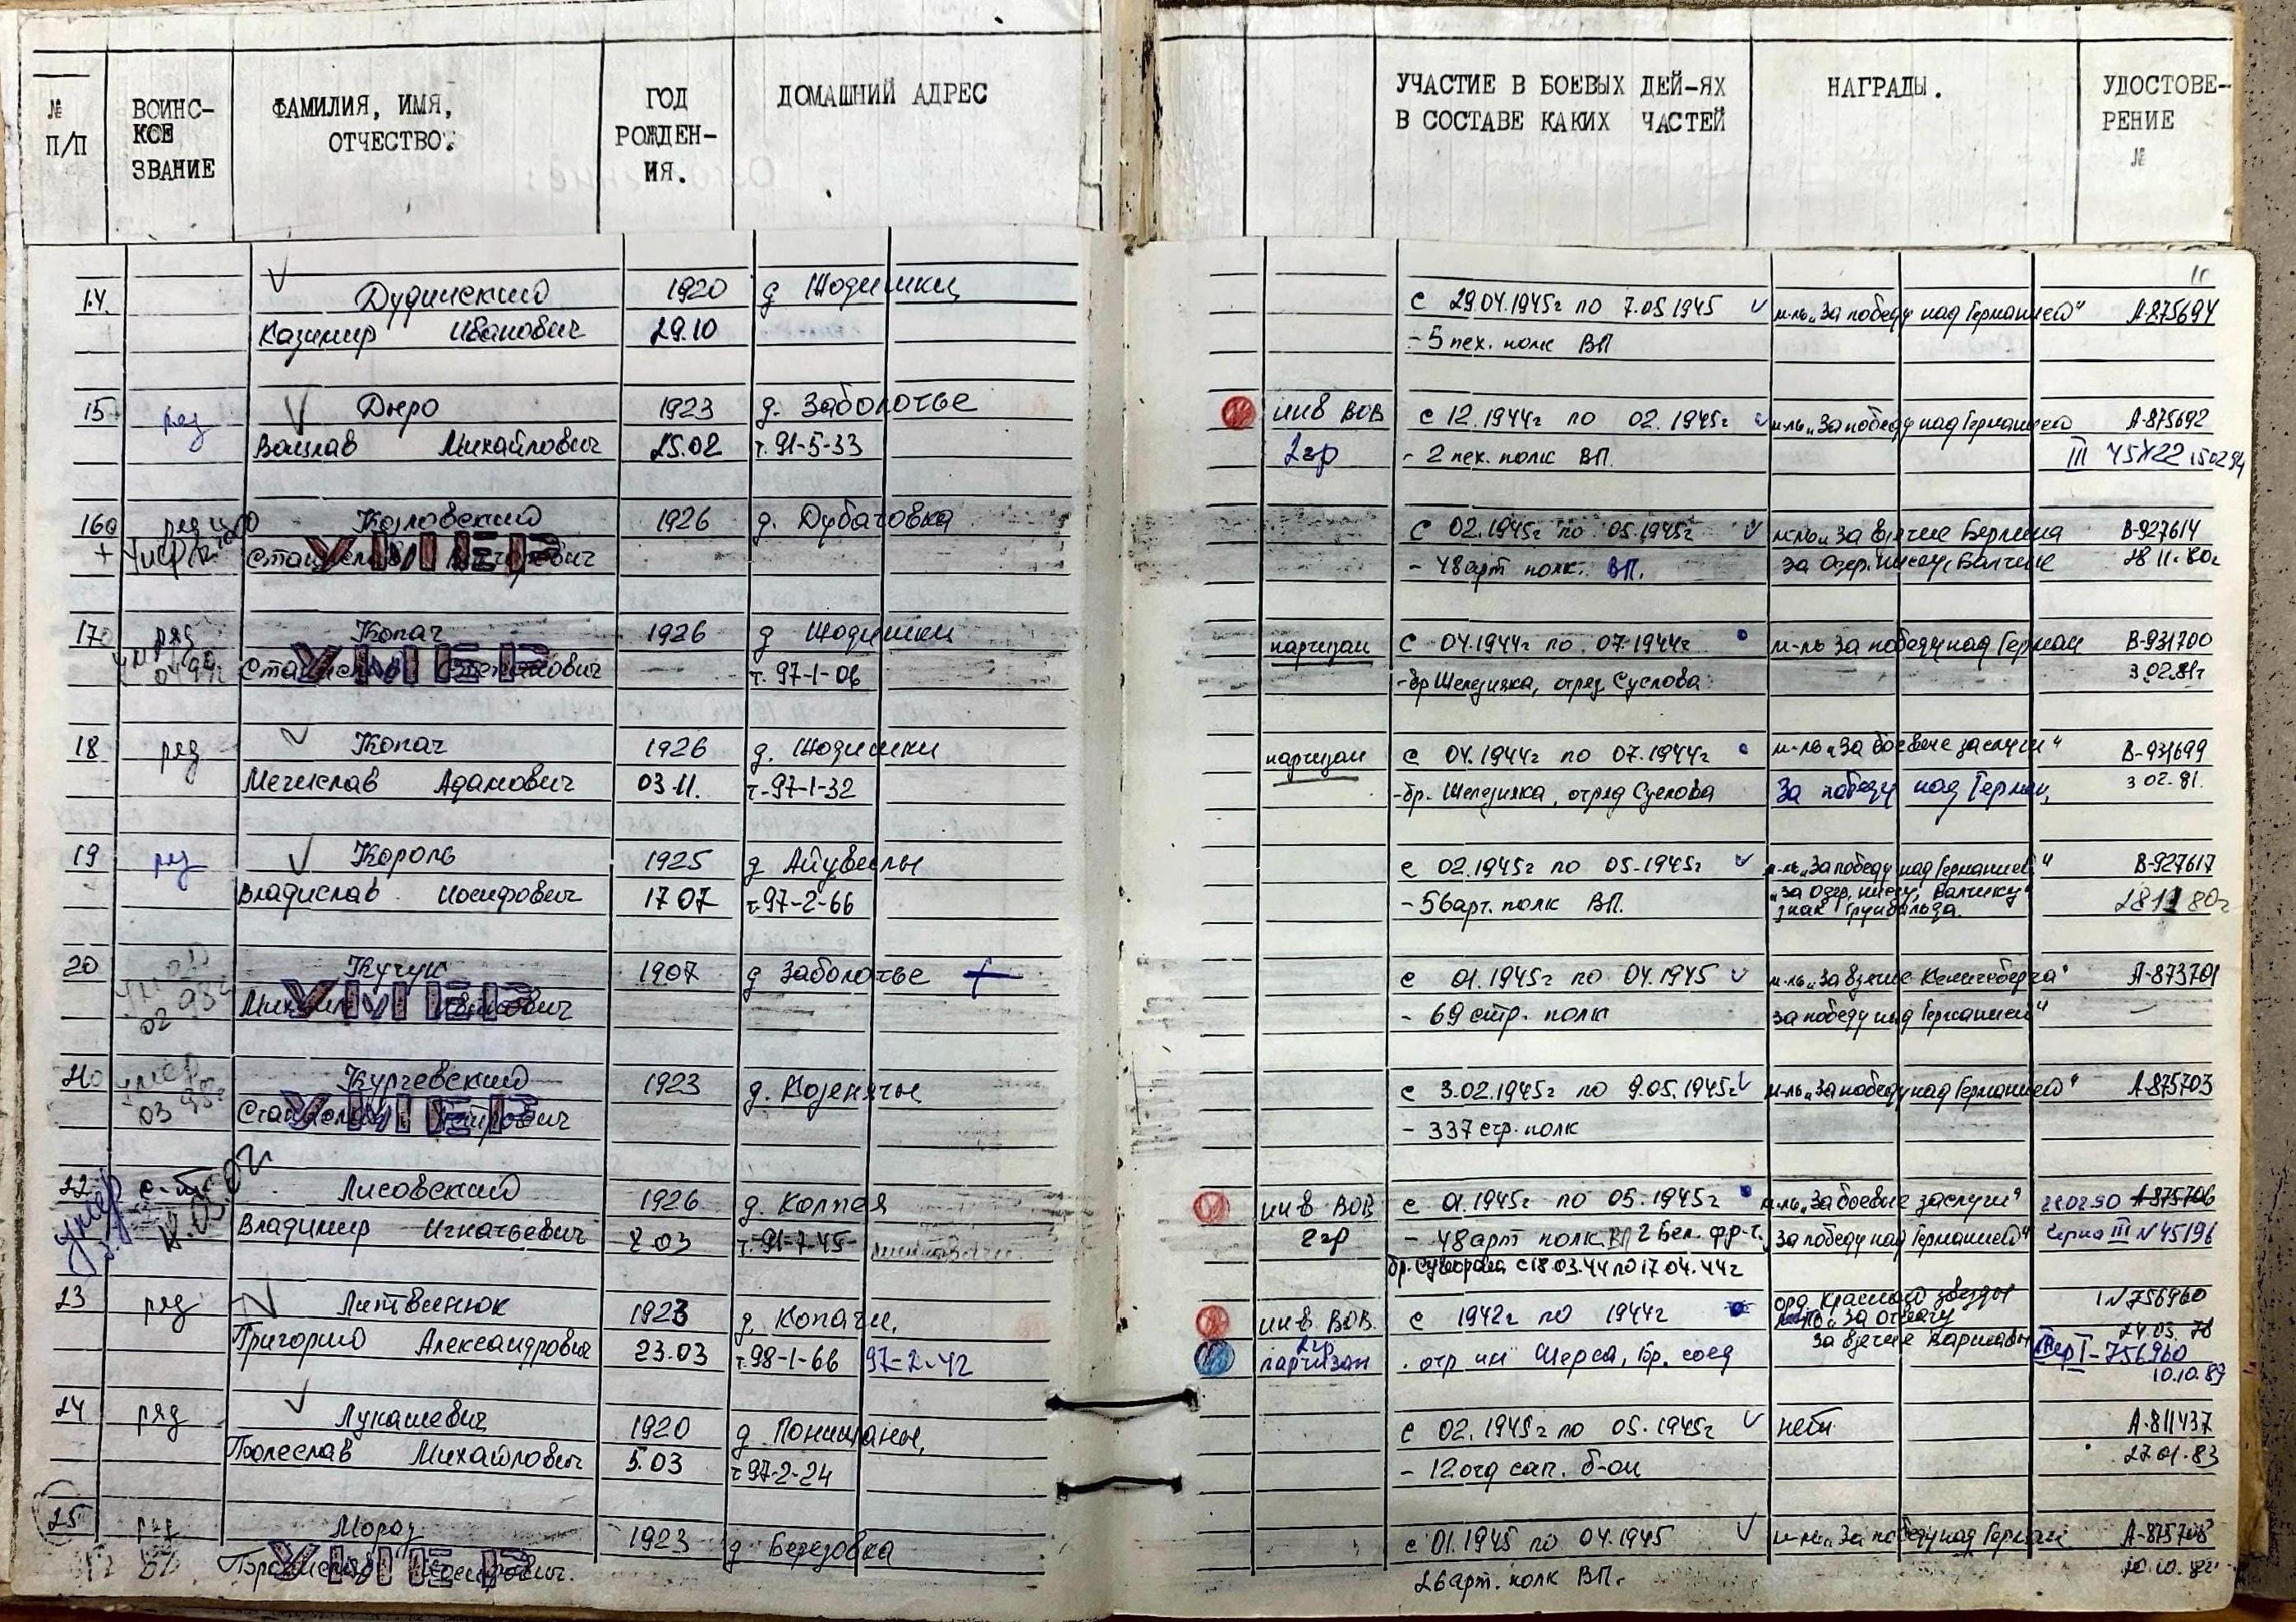 № П/П
ВОИНС-
КОЕ
ЗВАНИЕ
ФАМИЛИЯ, ИМЯ,
ОТЧЕСТВО.
ГОД
РОЖДЕН-
ИЯ.
ДОМАШНИЙ АДРЕС
УЧАСТИЕ В БОЕВЫХ ДЕЙ-ЯХ
В СОСТАВЕ КАКИХ ЧАСТЕЙ
НАГРАДЫ.
УДОСТОВЕ-
РЕНИЕ
№
14 Дудинский 1920 д Жодишки с 29.04.1945г по 7.05.1945 м-ль „За победу над Германией" А-875694
Казимир Иванович 29.10 - 5 пех. полк ВП
15 ряд Дыро 1923 д. Заболотье инв ВОВ с 12.1944г по 02.1945г м-ль „За победу над Германией А-875692
Вацлав Михайлович 25.02 т. 91-5-33 2 гр - 2 пех. полк ВП. III
16 ряд Козловский 1926 д. Дубатовка с 02.1945г по 05.1945г м-ль „За взятие Берлина В-927614
УМЕР - 48 арт полк. ВП. 28 11. 80г
17 ряд Копач 1926 д Жодишки партизан с 04.1944г по 07.1944г м-ль За победу над Герман В-931700
УМЕР т. 97-1-06 - бр Железняка, отряд Суслова 3.02.81г
18 ряд Копач 1926 д. Жодишки партизан с 04.1944г по 07.1944г м-ль „За боевые заслуги" В-931699
Мечислав Адамович 03.11. т-97-1-32 - бр. Железняка, отряд Суслова За победу над Герман, 3 02. 81.
19 ряд Король 1925 д с 02.1945г по 05.1945г м-ль „За победу над Германией" В-927617
Владислав Иосифович 17 07 т 97-2-66 - 56 арт. полк ВП. знак Грунвальда. 28 11 80г
20 Кучук 1907 д Заболотье с 01.1945г по 04.1945 м-ль „За взятие Кенигсберга" А-873701
УМЕР 02 93г - 69 стр. полк За победу над Германией"
21 умер Курчевский 1923 д. с 3.02.1945г по 9.05.1945г м-ль „За победу над Германией" А-875703
03 УМЕР - 337 стр. полк
22 умер Лисовский 1926 д. Колпея инв ВОВ с 01.1945г по 05.1945г м-ль „За боевые заслуги" 21.02.90 А-875706
Владимир Игнатьевич 2 03 т. 91-7-45 2 гр - 48 арт полк ВП 2 Бел. фр-т. За победу над Германией" Серия III N 45196
с 18.03.44 по 17.04.44г
23 ряд Литвинюк 1923 д. Копачи, инв. ВОВ. с 1942г по 1944г орд красной звезды I N 756960
Григорий Александрович 23.03 т. 98-1-66 97-2-42 2 гр партизан отр им Щорса, бр. соед За отвагу За взятие Варшавы 24.03. 78
сер I - 756960
10.10.89
24 ряд Лукашевич 1920 д с 02. 1945г по 05. 1945г А-811437
Болеслав Михайлович 5.03 т 97-2-24 - 12 отд сап. б-он 27.01.83
25 ряд Мороз 1923 д Березовка с 01.1945 по 04.1945 м-ль „За победу над Герман А-875708
УМЕР 26 арт. полк ВП.